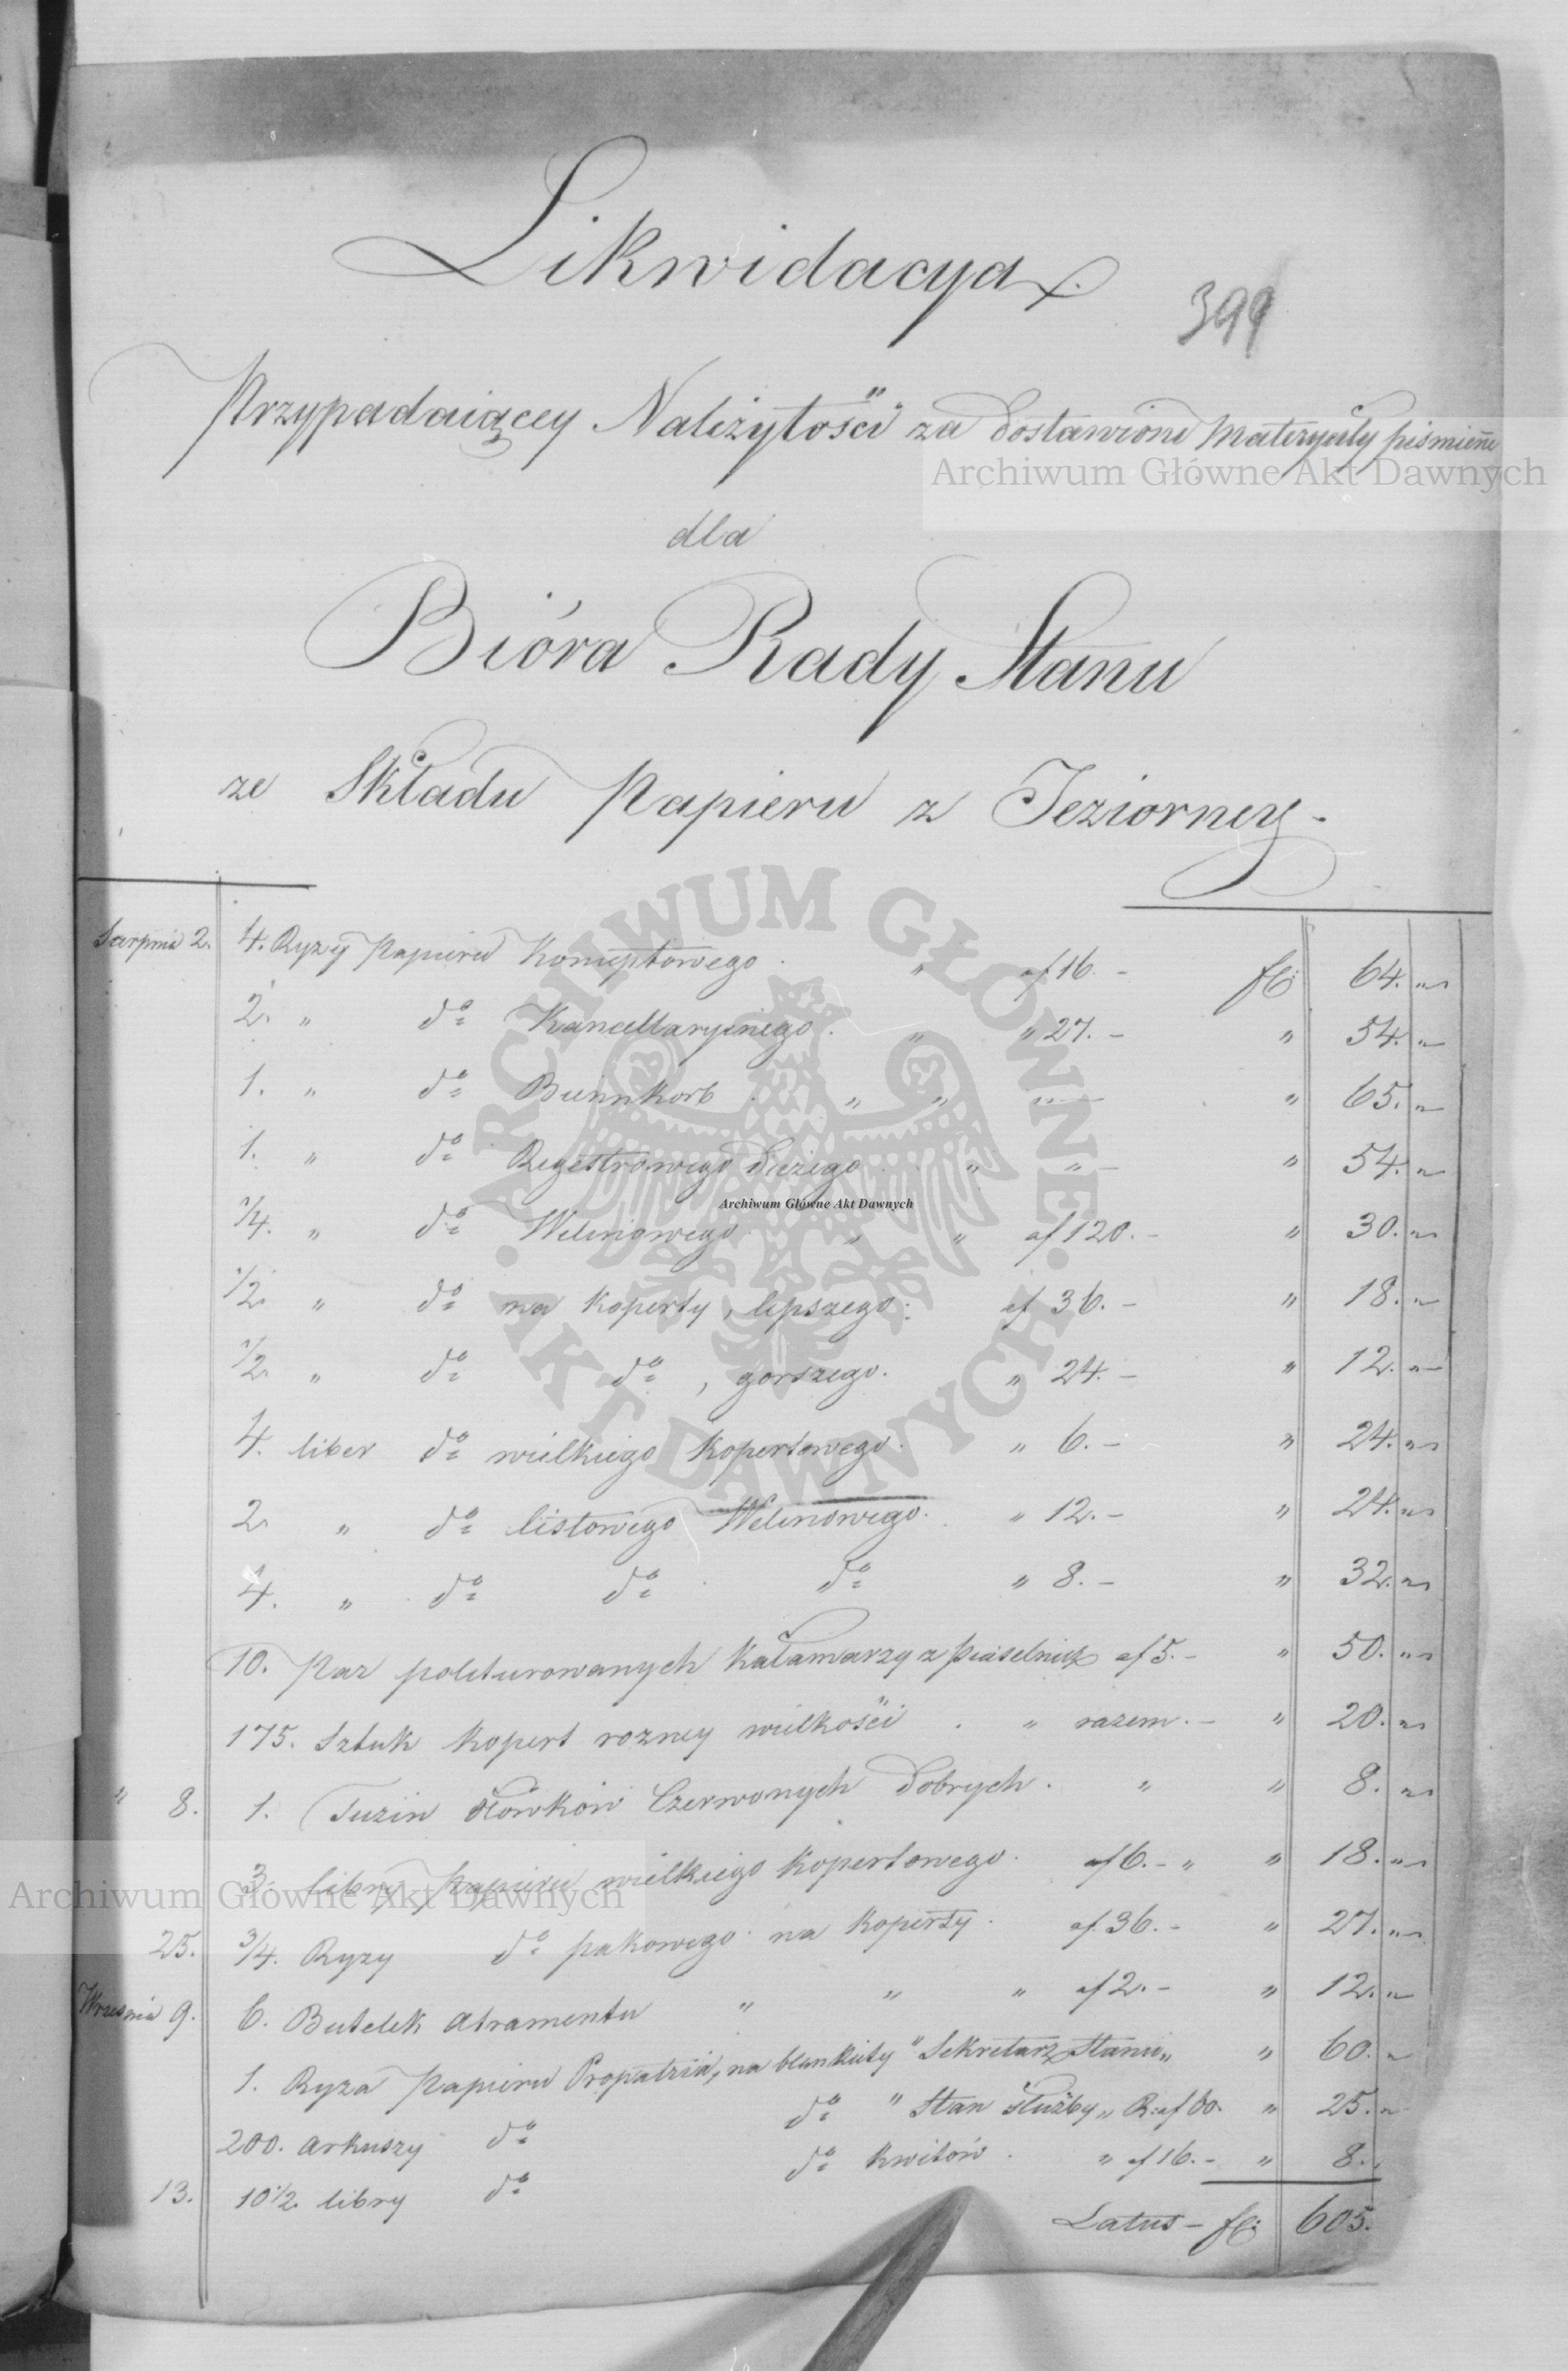 Likwidacya
399
Przypadaiącey Należytości za dostawione Materyały piśmienne
Archiwum Główne Akt Dawnych
dla
Bióra Rady Stanu
ze Składu Papieru z Jeziorney
Sierpnia 2. 4. Ryzy Papieru Konceptowego " af 16. - fl: 64. "
2. " do Kancellaryinego " " 27. - " 54. "
1. " do Bienenkorb " " " - " 65. "
1. " do Regestrowego Dużego " " - " 54. "
Archiwum Główne Akt Dawnych
1/4. " do Welinowego " " af 120. - " 30. "
1/2 " do na koperty, lepszego: af 36. - " 18. "
1/2 " do do, gorszego. " 24. - " 12. "
4. liber do wielkiego kopertowego. " 6. - " 24. "
2 " do listowego Welinowego. " 12. - " 24. "
4. " do do do " 8. - " 32. "
10. Par politurowanych Kałamarzy z Piaselnicz af 5. - " 50. "
175. Sztuk kopert rozney wielkości " razem. - " 20. "
" 8. 1. Tuzin ołówków Czerwonych Dobrych. " " 8. "
3. libry Papieru wielkiego kopertowego. af 6. - " " 18. "
Archiwum Główne Akt Dawnych
25. 3/4. Ryzy do pakowego na koperty. af 36. - " 27. "
Września 9. 6. Butelek Atramentu " " " af 2. - " 12. "
1. Ryza Papieru Propatria, na blankiety " Sekretarz Stanu " " 60. "
200. Arkuszy do do " Stan służby " R: af 60. " 25. "
13. 10 1/2 libry do do kwitów " af 16. - " 8. "
Latus - fl: 605.
ARCHIWUM GŁÓWNE AKT DAWNYCH